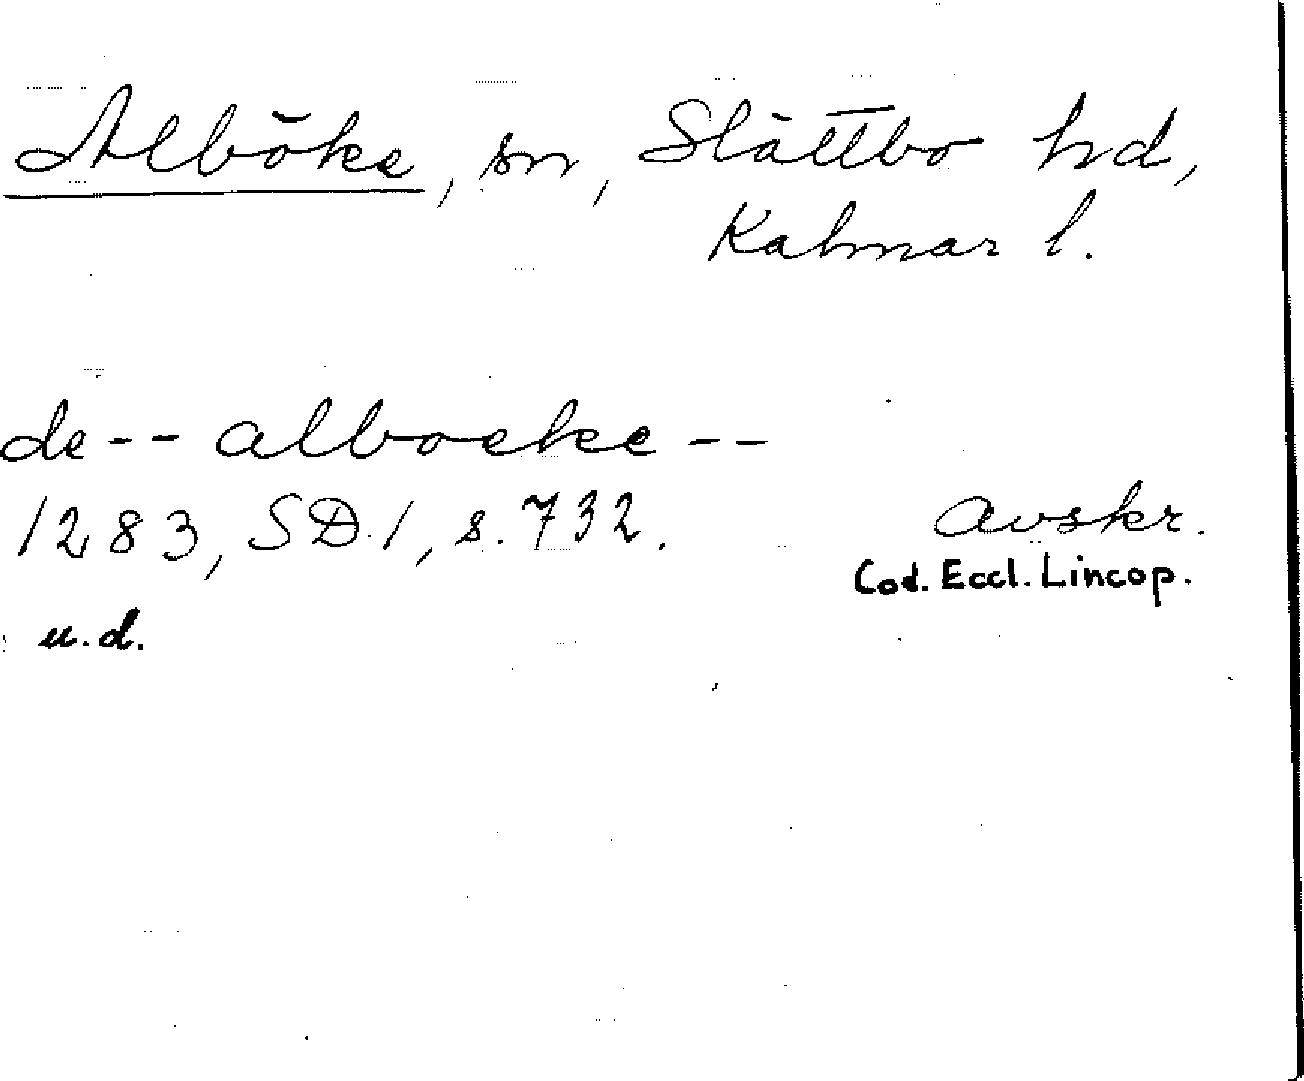 Alböke, sn, Slättbo hd,
Kalmar l.
de -- alboeke --
1283, SD 1, s. 732.
Avskr.
Cod. Eccl. Lincop.
u.d.